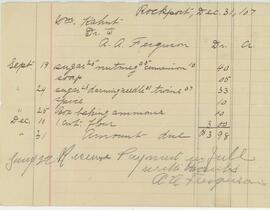 Rockport, Dec. 31, '07
Wm. Kahnt
Dr. to
A. A. Ferguson Dr. Cr
Sept 19 sugar 25 nutmeg 5 cinnamon 10 40
soap 05
" 24 sugar 25 darning needle 1, twine 07 33
spice 10
" 25 box baking ammonia 10
Dec 11 1 cwt. flour 3 00
" 31 Amount due $3 98
Received Payment in full
with thanks
A. A. Ferguson